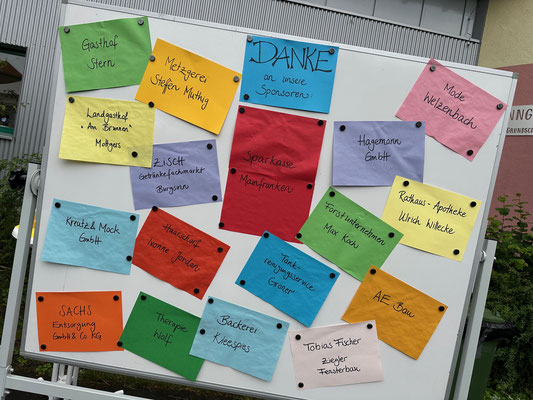 DANKE
an unsere
Sponsoren:
Gasthof
Stern
Metzgerei
Stefan Muthig
Mode
Welzenbach
Landgasthof
„Am Brunnen"
ZISCH
Getränkefachmarkt
Burgsinn
Sparkasse
Mainfranken
Hagemann
GmbH
Rathaus-Apotheke
Ulrich Willecke
Kreutz & Mock
GmbH
Haarscharf
Ivonne Jordan
Tank-
reinigungsservice
Forstunternehmen
Max Koch
AE Bau
SACHS
Entsorgung
GmbH & Co KG
Therapie
Wolf
Bäckerei
Kleespies
Tobias Fischer
Ziegler
Fensterbau